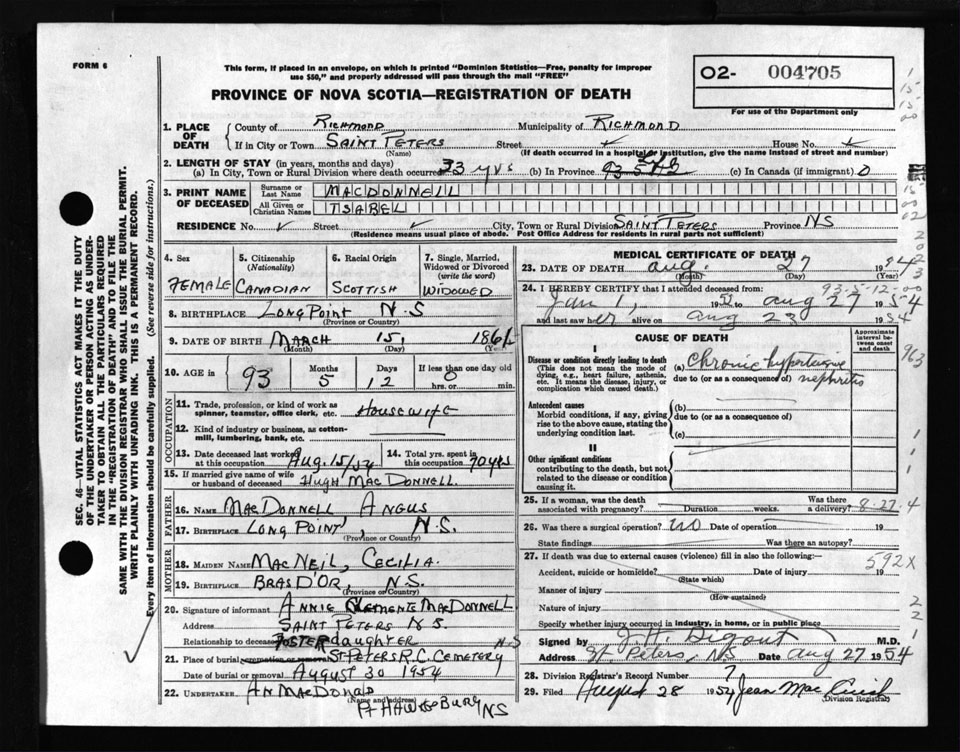 FORM 6
This form, if placed in an envelope, on which is printed "Dominion Statistics—Free, penalty for improper
use $50," and properly addressed will pass through the mail "FREE"
O2- 004705
For use of the Department only
PROVINCE OF NOVA SCOTIA—REGISTRATION OF DEATH
1. PLACE OF DEATH County of RICHMOND Municipality of RICHMOND
If in City or Town SAINT PETERS Street House No.
(Name) (If death occurred in a hospital or institution, give the name instead of street and number)
2. LENGTH OF STAY (in years, months and days)
(a) In City, Town or Rural Division where death occurred 33 yrs (b) In Province (c) In Canada (if immigrant) 0
3. PRINT NAME OF DECEASED Surname or Last Name MACDONNELL
All Given or Christian Names ISABEL
RESIDENCE No. Street City, Town or Rural Division SAINT PETERS Province NS
(Residence means usual place of abode. Post Office Address for residents in rural parts not sufficient)
4. Sex FEMALE
5. Citizenship (Nationality) CANADIAN
6. Racial Origin SCOTTISH
7. Single, Married, Widowed or Divorced (write the word) WIDOWED
8. BIRTHPLACE LONG POINT N.S
(Province or Country)
9. DATE OF BIRTH MARCH 15, 1861
(Month) (Day)
10. AGE in 93 YEARS MONTHS 5 DAYS 12 If less than one day old
0 hrs. or min.
OCCUPATION
11. Trade, profession, or kind of work as
spinner, teamster, office clerk, etc. HOUSEWIFE
12. Kind of industry or business, as cotton-
mill, lumbering, bank, etc.
13. Date deceased last worked at this occupation Aug. 15/54
14. Total yrs. spent in this occupation 70 yrs
15. If married give name of wife
or husband of deceased HUGH MACDONNELL.
FATHER
16. Name MACDONNELL ANGUS
17. Birthplace LONG POINT, N.S.
(Province or Country)
MOTHER
18. MAIDEN NAME MACNEIL, CECILIA.
19. BIRTHPLACE BRAS D'OR, N.S.
(Province or Country)
20. Signature of informant ANNIE CLEMENTS MACDONNELL
Address SAINT PETERS N S.
Relationship to deceased FOSTER daughter N.S
21. Place of burial, cremation or removal ST PETERS R.C. CEMETERY
Date of burial or removal AUGUST 30 1954
22. UNDERTAKER AN MACDONALD
(Name and address)
PT HAWKESBURY NS
MEDICAL CERTIFICATE OF DEATH
23. DATE OF DEATH Aug. 27
(Month) (Day) (Year)
93-5-12-00
24. I HEREBY CERTIFY that I attended deceased from:
Jan 1, to aug 27 1954
and last saw her alive on aug 23 1954
CAUSE OF DEATH
Approximate interval between onset and death
I
Disease or condition directly leading to death
(This does not mean the mode of
dying, e.g., heart failure, asthenia,
etc. It means the disease, injury, or
complication which caused death.)
(a) Chronic
due to (or as a consequence of) nephritis
Antecedent causes
Morbid conditions, if any, giving
rise to the above cause, stating the
underlying condition last.
(b)
due to (or as a consequence of)
(c)
II
Other significant conditions
contributing to the death, but not
related to the disease or condition
causing it.
25. If a woman, was the death
associated with pregnancy? Duration weeks.
Was there a delivery? 8-27-4
26. Was there a surgical operation? no Date of operation 19
State findings Was there an autopsy?
27. If death was due to external causes (violence) fill in also the following:—
592X
Accident, suicide or homicide? Date of injury 19
(State which)
Manner of injury
(How sustained)
Nature of injury
Specify whether injury occurred in industry, in home, or in public place
Signed by J. H. Digout M.D.
Address St. Peters, N.S Date Aug 27 1954
28. Division Registrar's Record Number 7
29. Filed August 28 1954 Jean Mac Cuish
(Division Registrar)
SEC. 46—VITAL STATISTICS ACT MAKES IT THE DUTY
OF THE UNDERTAKER OR PERSON ACTING AS UNDER-
TAKER TO OBTAIN ALL THE PARTICULARS REQUIRED
IN THE "REGISTRATION OF DEATH" AND TO FILE THE
SAME WITH THE DIVISION REGISTRAR WHO SHALL ISSUE THE BURIAL PERMIT.
WRITE PLAINLY WITH UNFADING INK. THIS IS A PERMANENT RECORD.
Every item of information should be carefully supplied. (See reverse side for instructions.)